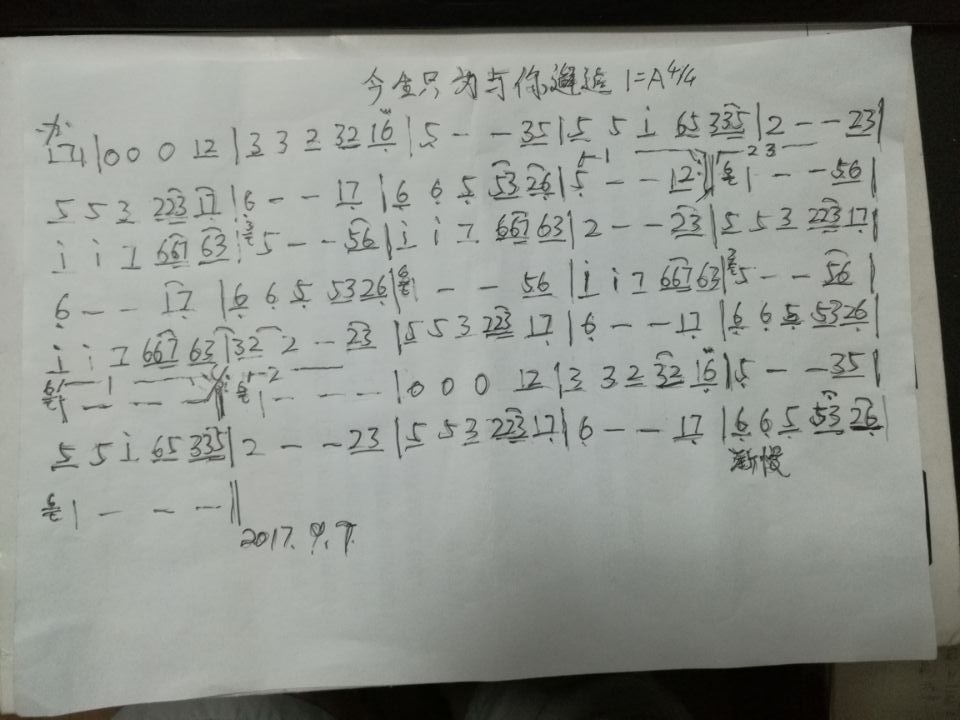 今生只为与你邂逅 1=A 4/4
|0 0 0 12|3 3 2 32 16|5 - - 35|5 5 i 65 335|2 - - 23|
5 5 3 223 17|6 - - 17|6 6 5 53 26|5 - - 12|1 - - 56|
i i 7 667 63|5 - - 56|i i 7 667 63|2 - - 23|5 5 3 223 17|
6 - - 17|6 6 5 53 26|1 - - 56|i i 7 667 63|5 - - 56|
i i 7 667 63|32 2 - 23|5 5 3 223 17|6 - - 17|6 6 5 53 26|
1 - - -|1 - - -|0 0 0 12|3 3 2 32 16|5 - - 35|
5 5 i 65 335|2 - - 23|5 5 3 223 17|6 - - 17|6 6 5 53 26|
渐慢
1 - - -||
2017.9.7